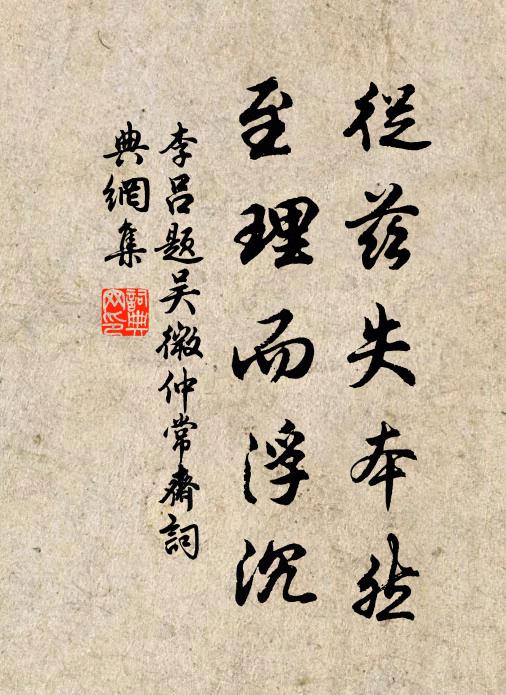 從茲失本然
至理而浮沉
李呂題吴微仲常齋詞
典網集
詞典
网印